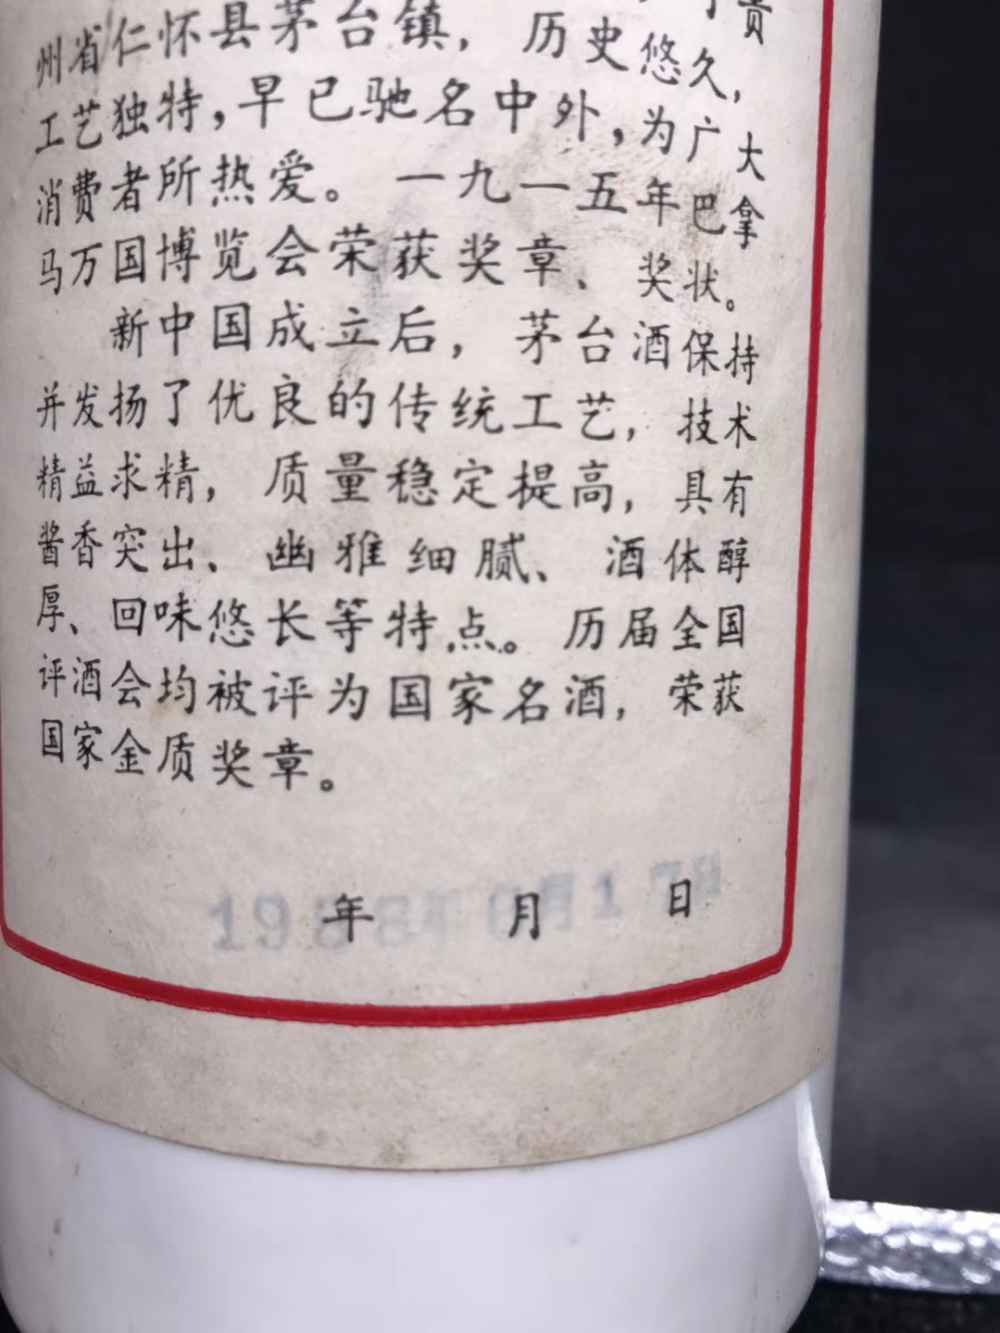 贵
州省仁怀县茅台镇，历史悠久，
工艺独特，早已驰名中外，为广大
消费者所热爱。一九一五年巴拿
马万国博览会荣获奖章、奖状。
新中国成立后，茅台酒保持
并发扬了优良的传统工艺，技术
精益求精，质量稳定提高，具有
酱香突出、幽雅细腻、酒体醇
厚、回味悠长等特点。历届全国
评酒会均被评为国家名酒，荣获
国家金质奖章。
年 月 日